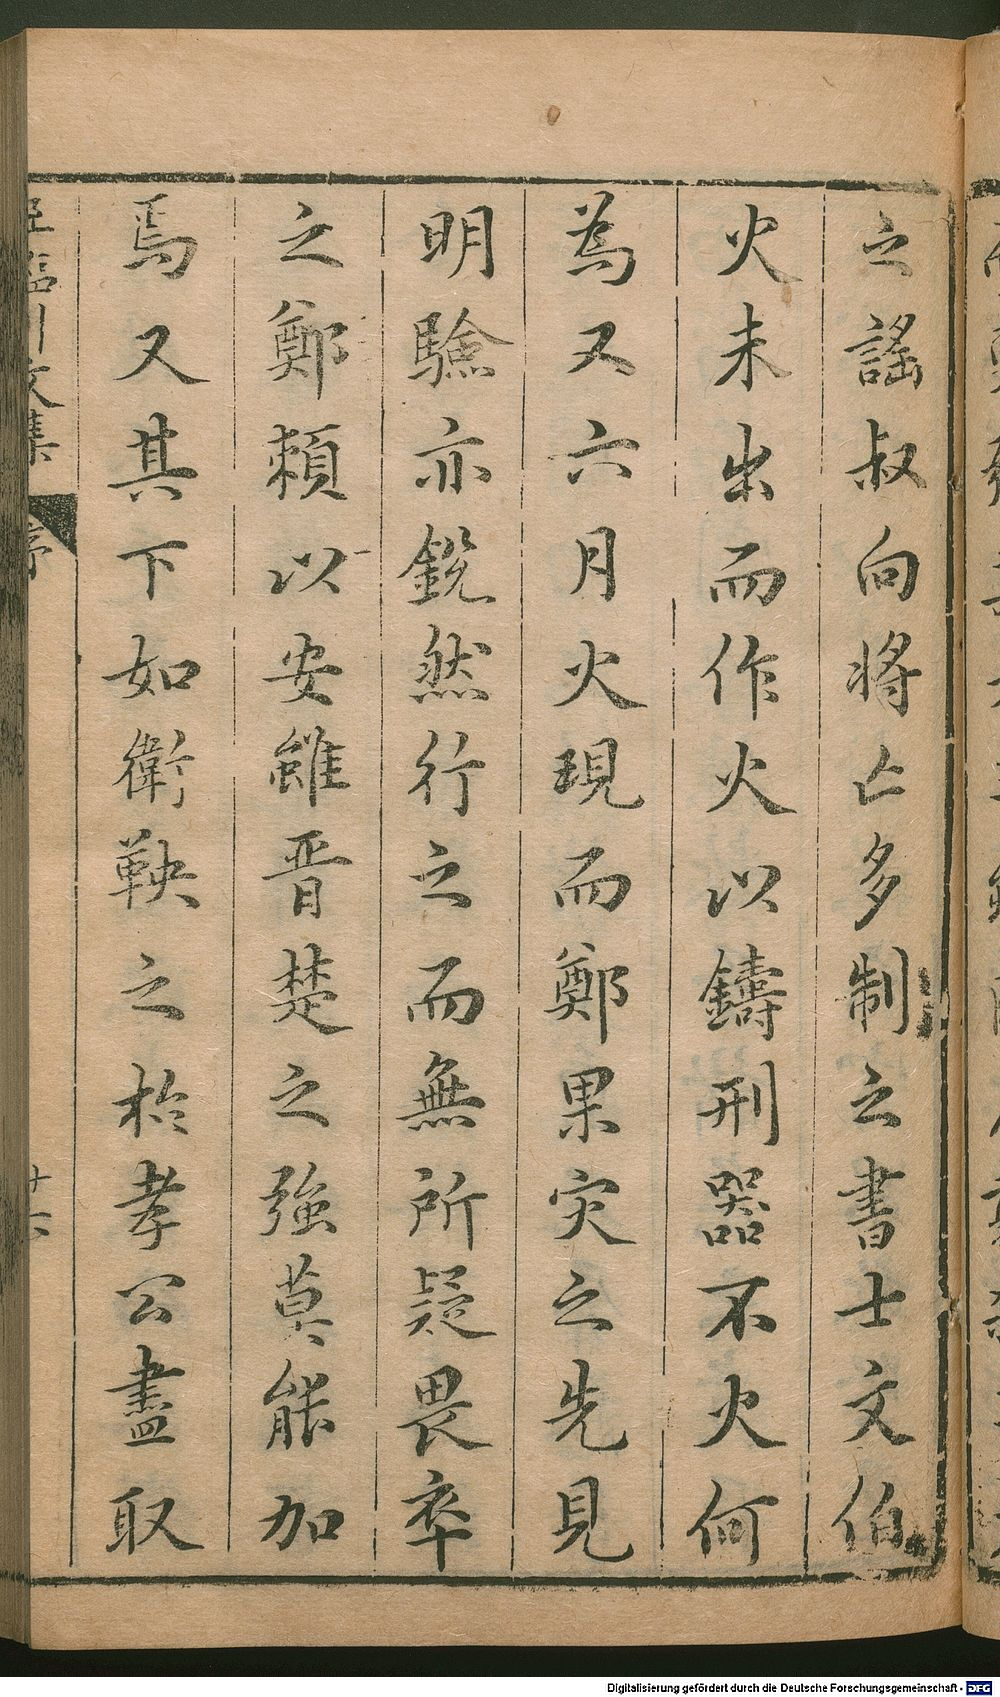 之謠叔向將亡多制之書士文伯
火未出而作火以鑄刑器不火何
為又六月火現而鄭果灾之先見
明驗亦銳然行之而無所疑畏卒
之鄭頼以安雖晋楚之強莫能加
焉又其下如衛鞅之於孝公盡取
臨川文集
序
十六
Digitalisierung gefördert durch die Deutsche Forschungsgemeinschaft - DFG